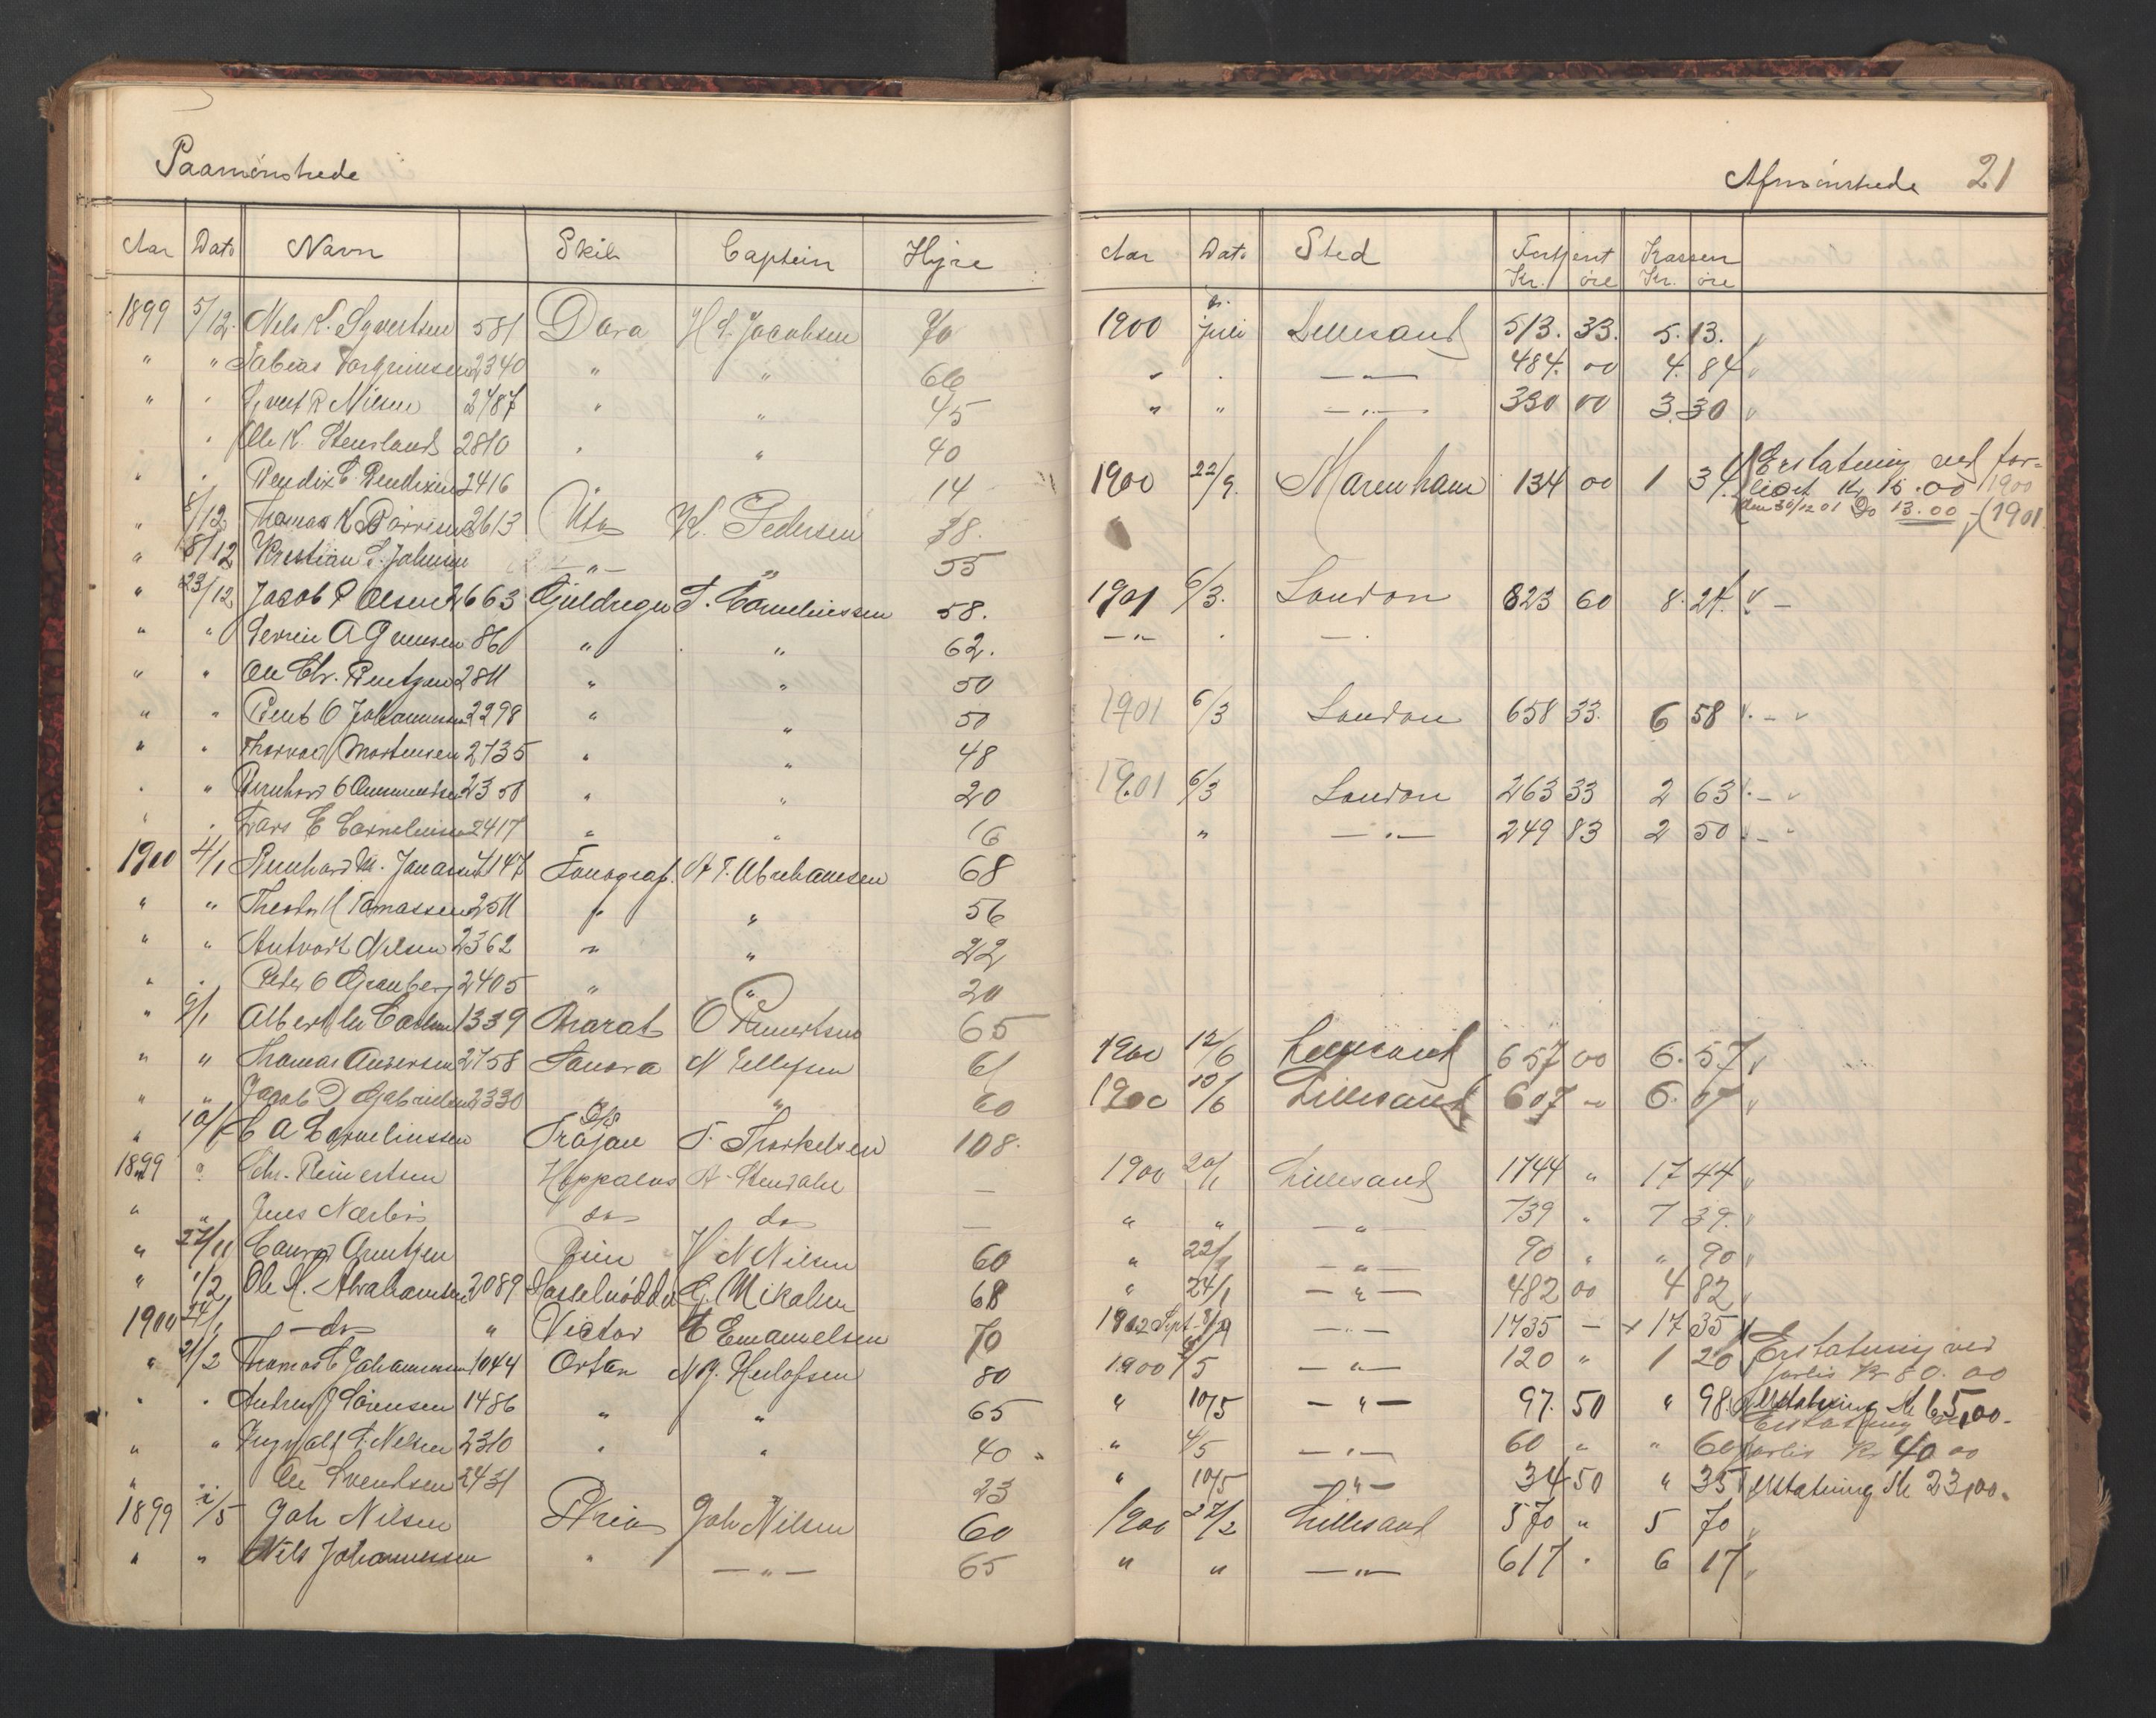 Paamönstrede
Afmönstrede 21
Aar Dato Navn Skib Captein Hyre Aar Dato Sted Fortjent Kr. öre Kassen Kr. öre
1899 5/12. Nels K. Syvertsen 581 Dora H S. Jacobsen 70 1900 juli Lillesand 513. 33. 5. 13. "
" " Tobias Torgrimsen 2340 " " 66 " . — " — 484. 00 4. 84 "
" " Syvert R Nilsen 2487 " " 45 " " — " — 330 00 3. 30 "
" Ole K. Stensland 2810 " " 40
" " Bendix C. Bendixen 2416 14 1900 22/9. 134 00 1 34 Erstatning ved for-
liset Kr 15.00 1900
" 8/12 Thomas K Börresen 2613 Uto K. Pedersen 38. den 30/12 01 Do 13.00 - (1901
" 8/12 Kristian S. Johnsen — " — " 55
" 23/12 Jacob P Olsen 2663 Guldregn T. Cornelinssen 58. 1901 6/3. London 823 60 8. 24. " —
" " A Gunnsen 86 " " 62. — " — . — .
" " Ole Chr. Bentzen 2811 " " 50
" " Bent O Johannesen 2298 " " 50 1901 6/3 London 658 33. 6 58
" " Thorvad Mortensen 2735 " " 48
" " Bernhard O Ommundsen 2358 " " 20 1901 6/3 London 263 33 2 63
" . Lars E Cornelinsen 2417 " " 16 " — " — 249 83 2 50
1900 4/1 Bernhard M. Jonassen 2147 Fonograf. A T. Abrahamsen 68
" " Theodor Tomassen 2511 " " 56
" " Antvort Nilsen 2362 " " 22
" . Peder O Granberg 2405 " " 20
" 9/1 Albert Carlsen 1339 Marat O Reinertsen 65
" " Thomas Andersen 2758 Sanora N Ellefsen 61 1900 12/6 Lillesand 657 00 6. 57 "
" " Jacob D Gabrielsen 2330 " " 60 1900 10/6 Lillesand 607 - 6. 07 "
" 10/1 C A Cornelinssen D/S Trojan T. Thorkelsen 108.
1899 " Chr. Reinertsen Hoppalos A. Stendahl — 1900 20/1 Lillesand 1744 " 17 44 "
" " Jens do do — " " — " — 739 " 7 39. "
" 27/11 Arntzen H N Nilsen 60 " 22/1 — " — 90 " " 90 "
" 1/2 Ole A. Abrahamsen 2089 Hasselnödden G. Mikalsen 68 " 24/1 — " — 482 00 4 82 "
1900 24/1 — do — " Victor E Emanuelsen 70 1902 Sept — " — 1735 — 17 35
" 21/2 Thomas C Johannesen 1044 Ortan N J. Herlofsen 80 1900 /5 — " — 120 " 1 20 Erstatning ved
forlis Kr 80.00
" . Andreas J Sörensen 1486 " " 65 " 10/5 — " — 97. 50 " 98. Erstatning Kr 65,00.
" " Ingvald T. Nilsen 2310 " " 40 " 4/5 — " — 60 " " 60 Erstatning
forlis Kr 40 00
" " Ole Svendsen 2431 23 " 10/5 — " — 34 50 " 35 Erstatning Kr 23,00.
1899 /5 Joh Nilsen Joh Nilsen 60 1900 27/2 Lillesand 570 " 5 70 "
" " Nils Johannessen " — " — 65 " " — " — 617 . 6 17 "